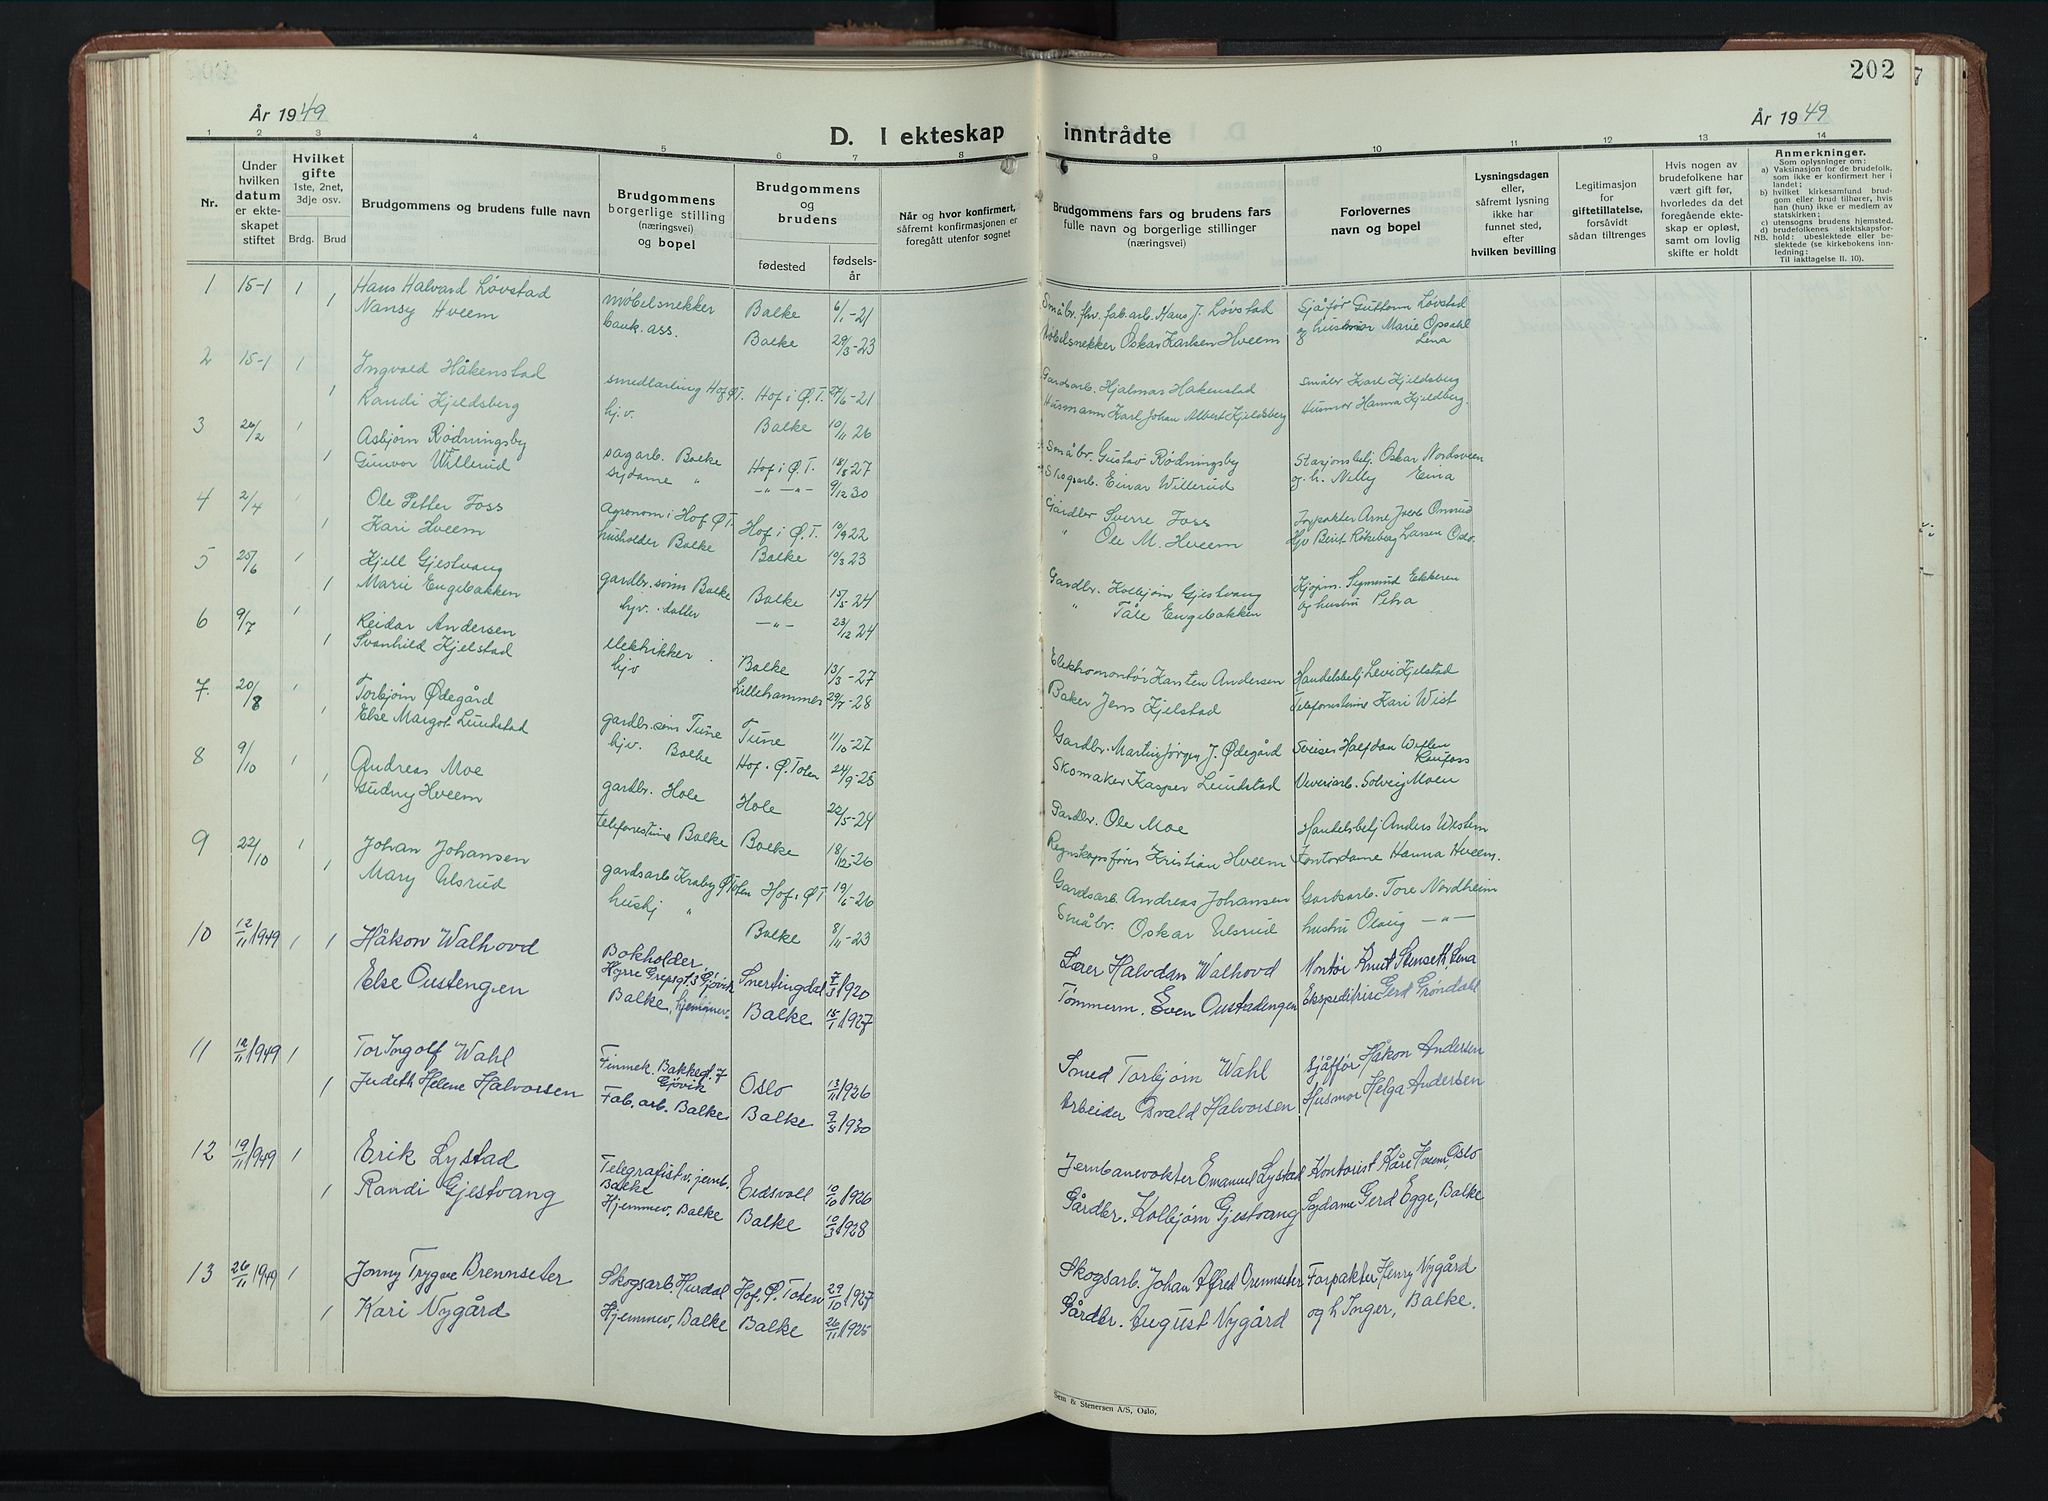 202
År 1949
År 1949
D. I ekteskap inntrådte
1 2 3 4 5 6 7 8 9 10 11 12 13 14
Nr.
Under hvilken datum er ekteskapet stiftet
Hvilket gifte 1ste, 2net, 3dje osv.
Brdg. Brud
Brudgommens og brudens fulle navn
Brudgommens borgerlige stilling (næringsvei) og bopel
Brudgommens og brudens
fødested
fødselsår
Når og hvor konfirmert, såfremt konfirmasjonen er foregått utenfor sognet
Brudgommens fars og brudens fars fulle navn og borgerlige stillinger (næringsvei)
Forlovernes navn og bopel
Lysningsdagen eller, såfremt lysning ikke har funnet sted, efter hvilken bevilling
Legitimasjon for giftetillatelse, forsåvidt sådan tiltrenges
Hvis nogen av brudefolkene har vært gift før, hvorledes da det foregående ekteskap er opløst, samt om lovlig skifte er holdt
Anmerkninger.
Som oplysninger om:
a) Vaksinasjon for de brudefolk, som ikke er konfirmert her i landet;
b) hvilket kirkesamfund brudgom eller brud tilhører, hvis han (hun) ikke er medlem av statskirken;
c) utensogns brudens hjemsted.
d) brudefolkenes slektskapsforhold: ubeslektede eller beslektede (se kirkebokens innledning:
NB. Til iakttagelse II. 10).
1 15-1 1 Hans Halvard Løvstad møbelsnekker Balke 6/1-21 Småbr. fhv. fab.arb. Hans J. Løvstad Sjåfør Guttorm Løvstad
1 Nansy Hveem bank.ass. Balke 29/3-23 Møbelsnekker Oskar Karlsen Hveem og hustru Marie Opsahl Lena
2 15-1 1 Ingvald Håkenstad smedlærling Hof Ø.T. Hof i Ø.T. 27/6-21 Gardsarb. Hjalmar Håkenstad Småbr Karl Kjeldsberg
1 Randi Kjeldsberg hjv. Balke 10/11 26 Husmann Karl Johan Albert Kjeldsberg Husmor Hanna Kjeldberg.
3 26/2 1 Asbjørn Rødningsby sagarb. Balke Hof i Ø.T. 18/8 27 Småbr. Gustav Rødningsby Stasjonsbetj Oskar Nordsveen
1 Gunvor Willerud sydame " -"- -"- 9/12 30 Skogsarb. Einar Willerud og h. Nelly Eina
4 2/4 1 Ole Petter Foss agronom i Hof Ø.T. Hof i Ø.T. 10/9 22 Gårdbr Sverre Foss Arne
1 Kari Hveem husholder Balke Balke 10/3 23 " Ole M. Hveem Hjv Berit Rokeberg Larsen Oslo.
5 25/6 1 Kjell Gjestvang gardbr.sønn Balke Balke 15/5 24 Gardbr. Kolbjørn Gjestvang Kjøpm. Sigmund Ekkeren
1 Marie Engebakken hjv. datter -"- 23/12 24 " Tåle Engebakken og hustru Petra
6 9/7 1 Reidar Andersen elektrikker Balke 13/3-27 Elektromontør Karsten Andersen Handelsbetj Levi Kjelstad
1 Svanhild Kjelstad hjv Lillehammer 29/7-28 Baker Jens Kjelstad Telefonistinne Kari Wist
7. 20/8 1 Torbjørn Ødegård gardbr.sønn Tune Tune 11/10-27 Gardbr. Martin Jørgen J. Ødegård Sveiser Halfdan Raufoss
1 Else Margot Lundstad hjv. Balke Hof i Ø.Toten 24/9-25 Skomaker Kasper Lundstad Veveriarb. Solveig Moen
8 9/10 1 Andreas Moe gardbr. Hole Hole 22/5-24 Gardbr. Ole Moe Handelsbetj Anders Westem
1 Gudny Hveem telefonistinne Balke Balke 18/12-26 Regnskapsfører Kristian Hveem Kontordame Hanna Hveem.
9 22/10 1 Johan Johansen gardsarb Kraby Ø Toten Hof i Ø T 19/6-26 Gardsarb. Andreas Johansen Gardsarb. Tore Nordheim
1 Mary Ulsrud hushj " Balke 8/11-23 Småbr. Oskar Ulsrud hustru Olaug -"-
10 12/11 1949 1 1 Håkon Walhovd Bokholder, Gjøvik Snertingdal 7/3 1920 Lærer Halvdan Walhovd Montør Knut Stenseth, Lena
Else Oustengen Balke, hjemmev. Balke 15/1 1927 Tømmerm. Even Oustadengen Ekspeditrise Gerd Grøndahl
11 12/11 1949 1 Tor Ingolf Wahl Finmek. Bakkegt. 7 Gjøvik Oslo 13/11 1926 Smed Torbjørn Wahl Sjåffør Håkon Andersen
1 Judith Helene Halvorsen Fab. arb. Balke Balke 9/5 1930 Arbeider Osvald Halvorsen Husmor Helga Andersen
12 19/11 1949 1 Erik Lystad Telegrafist v. jernb. Balke Eidsvoll 10/10 1926 Jernbanevokter Emanuel Lystad Kontorist Kåre Hveem, Oslo
1 Randi Gjestvang Hjemmev, Balke Balke 10/3 1928 Gårdbr. Kolbjørn Gjestvang Sydame Gerd Egge, Balke
13 26/11 1949 1 Jonny Trygve Brennseter Skogsarb. Hurdal Hof, Ø. Toten 29/10 1927 Skogsarb. Johan Alfred Brennseter Forpakter Henry Nygård
1 Kari Nygård Hjemmev, Balke Balke 26/11 1925 Gårdbr. August Nygård og h Inger, Balke.
Sem & Stenersen A/S, Oslo.